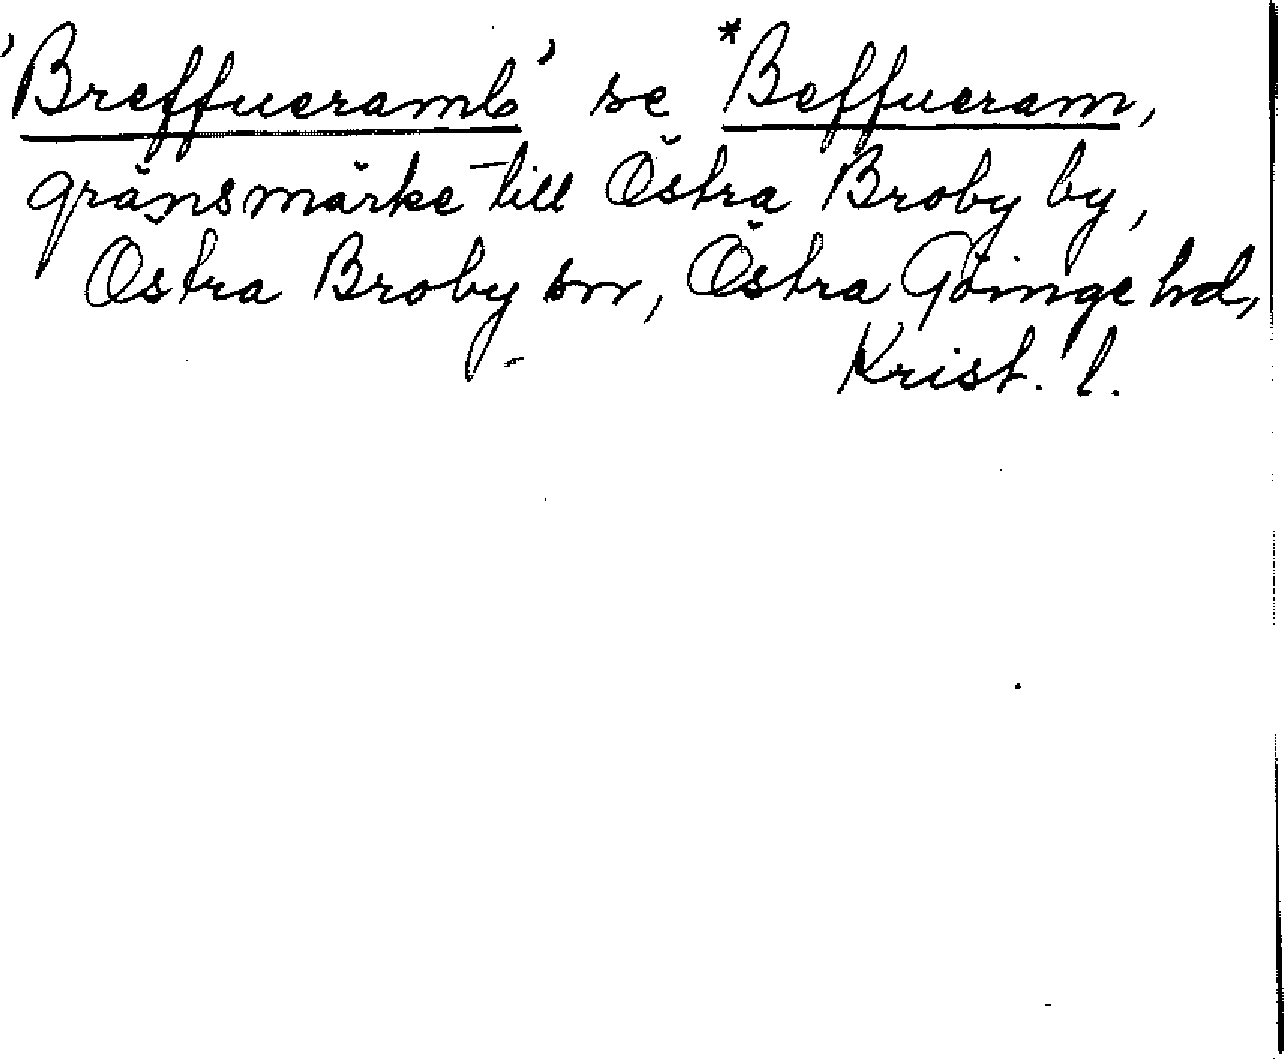 'Breffueramb' se *Beffueram,
gränsmärke till Östra Broby by,
Östra Broby sn, Östra Göinge hd,
Krist. l.